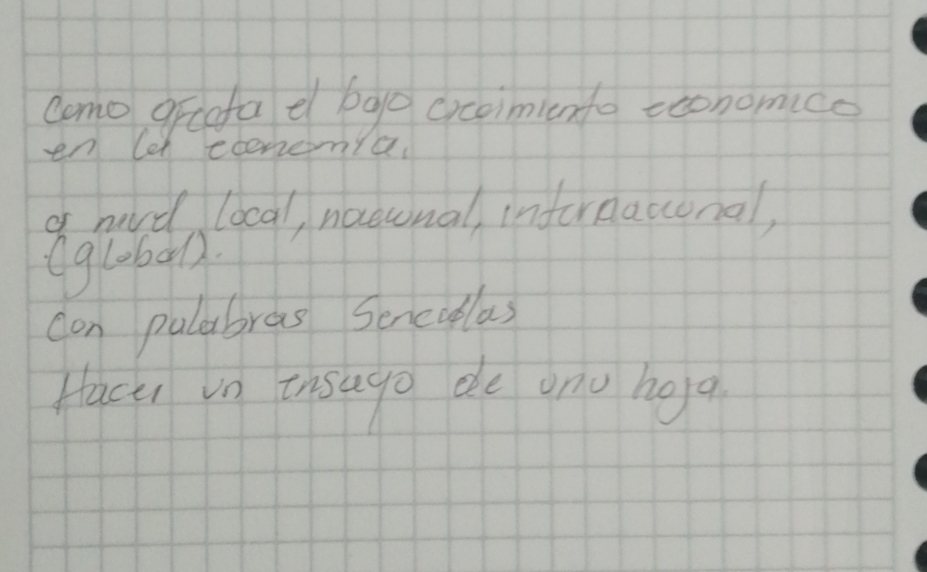 Como afecta el bajo crecimiento economico
en la economia.
a nivel local, nacional, internacional,
(global).
Con palabras Sencillas
Hacer un ensayo de una hoja.